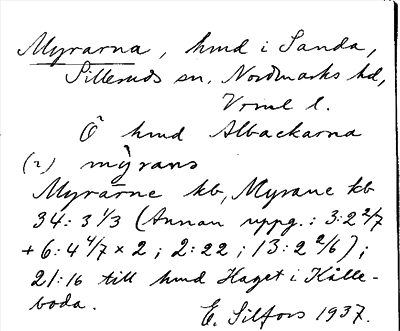 Myrarna, hmd i Sanda,
Silleruds sn. Nordmarks hd,
Vrml l.
Ö hmd Albackarna
(2) mỳrans
Myrärne kb, Myrane kb
34: 3 1/3 (Annan uppg.: 3:2 2/7
+ 6: 4 4/7 x 2; 2:22; 13:2 2/6);
21:16 till hmd Haget i Kålle-
boda.
E. Silfors 1937.